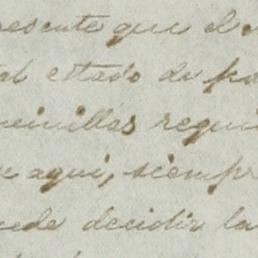 resente que el
tal estado de
requi
e aqui, siempr
uede decidir la